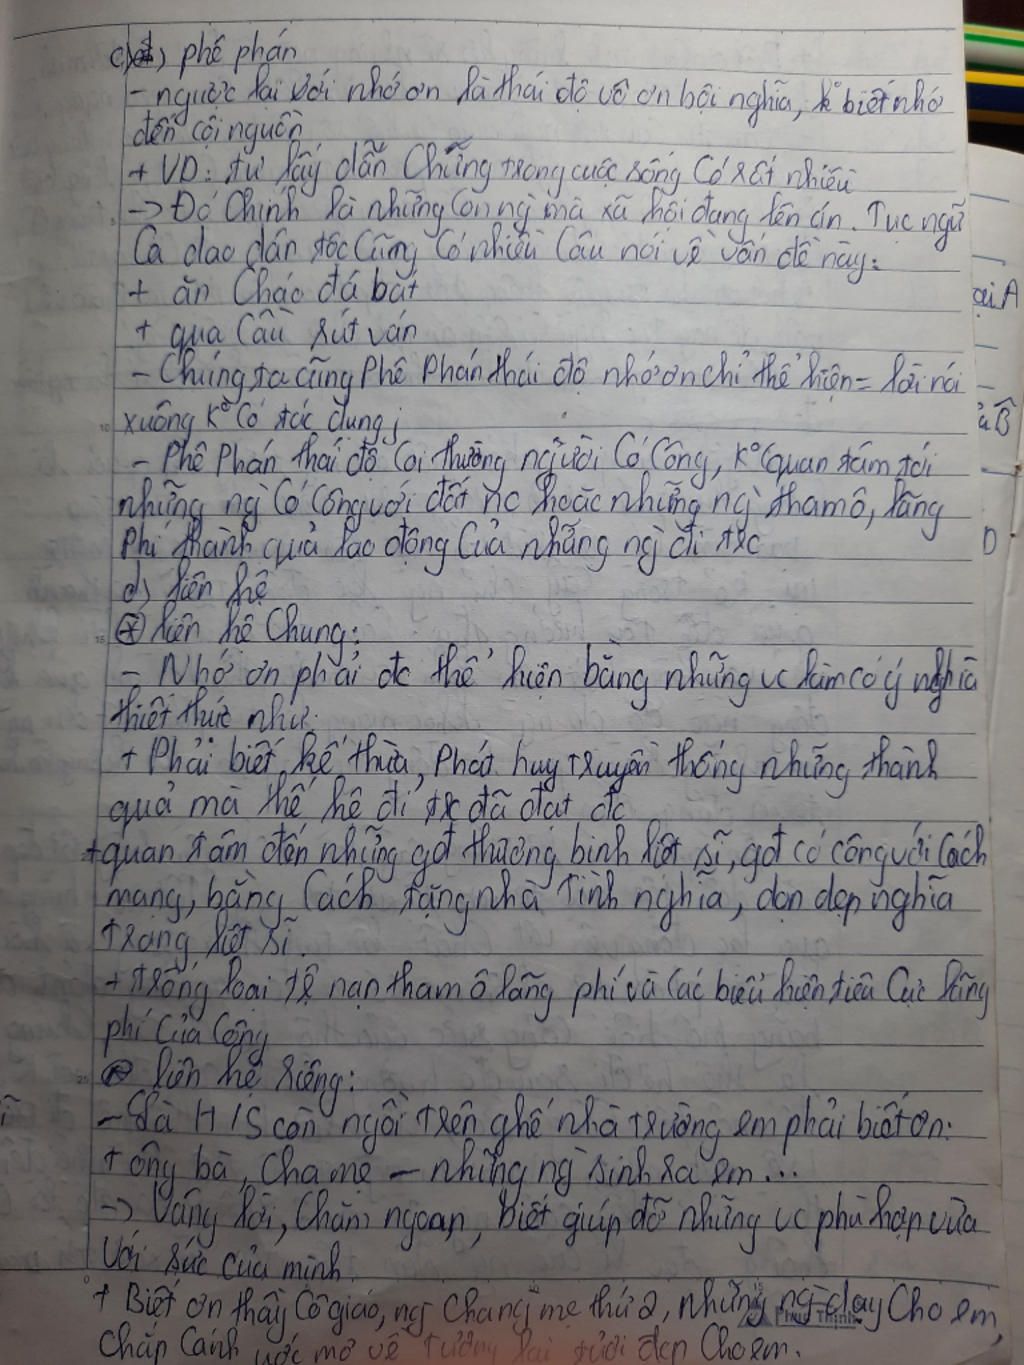 c) phê phán
- ngược lại với nhớ ơn là thái độ vô ơn bội nghĩa, k° biết nhớ
đến cội nguồn
+ VD: tự lấy dẫn chứng trong cuộc sống có rất nhiều
-> Đó chính là những con ng` mà xã hội đang lên án. Tục ngữ
Ca dao dân tộc cũng có nhiều câu nói về vấn đề này:
+ ăn cháo đá bát
+ qua cầu rút ván
- Chúng ta cũng phê phán thái độ nhớ ơn chỉ thể hiện = lời nói
xuông k° có tác dụng
- Phê phán thái độ coi thường người có công, k° quan tâm tới
những ng` có công với đất nc hoặc những ng` tham ô, lãng
phí thành quả lao động của những ng` đi trc
d) liên hệ
* liên hệ chung:
- Nhớ ơn phải đc thể hiện bằng những vc làm có ý nghĩa
thiết thực như:
+ Phải biết kế thừa, phát huy truyền thống những thành
quả mà thế hệ đi trc đã đạt đc
+ quan tâm đến những gđ thương binh liệt sĩ, gđ có công với Cách
mạng, bằng cách tặng nhà tình nghĩa, dọn dẹp nghĩa
trang liệt sĩ.
+ trống loại tệ nạn tham ô lãng phí và các biểu hiện tiêu cực lãng
phí của công
* liên hệ riêng:
- Là H/S còn ngồi trên ghế nhà trường em phải biết ơn:
+ ông bà, cha mẹ - những ng` sinh ra em...
-> Vâng lời, chăm ngoan, biết giúp đỡ những vc phù hợp vừa
với sức của mình.
+ Biết ơn thầy cô giáo, ng` cha ng` mẹ thứ 2, những ng` dạy cho em,
chắp cánh ước mơ về tương lai tươi đẹp cho em.
ại A
ủa B
D
Phúc Thịnh